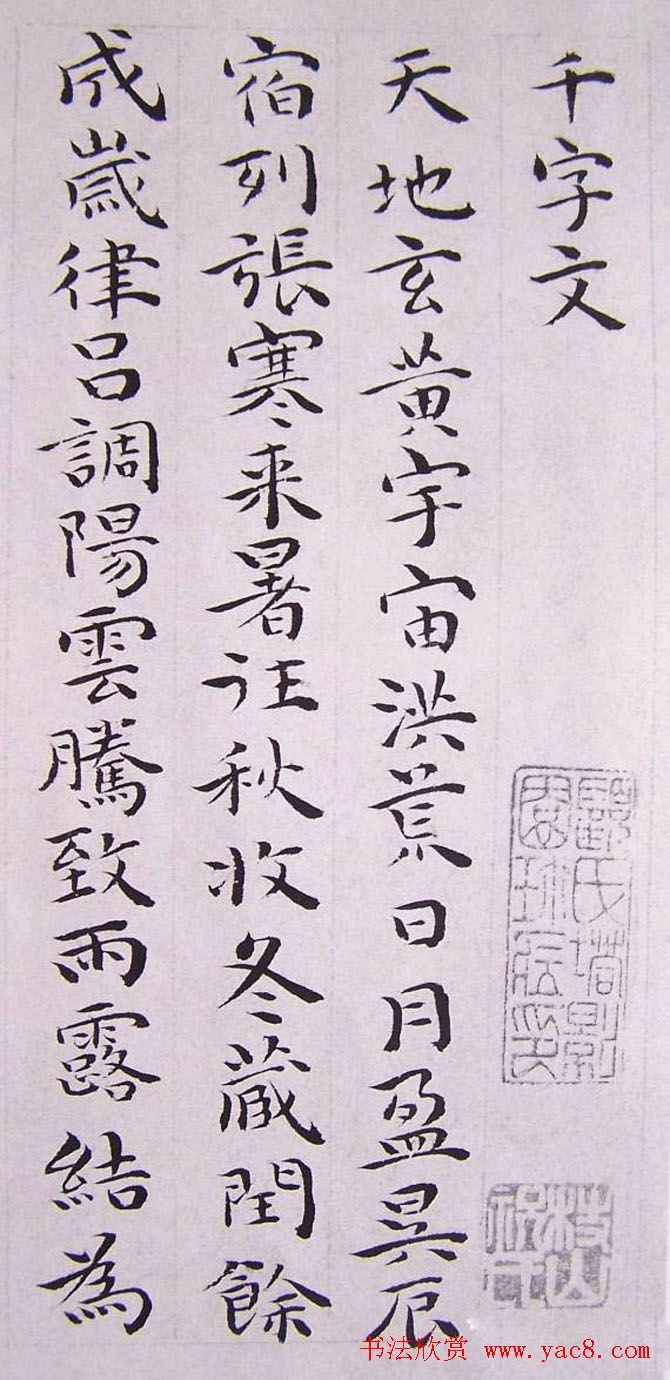 千字文
天地玄黄宇宙洪荒日月盈昃辰
宿列張寒来暑往秋收冬蔵閏餘
成歲律吕調陽雲騰致雨露結為
顧氏塔影
園珍藏印
枝山
书法欣赏 www.yac8.com